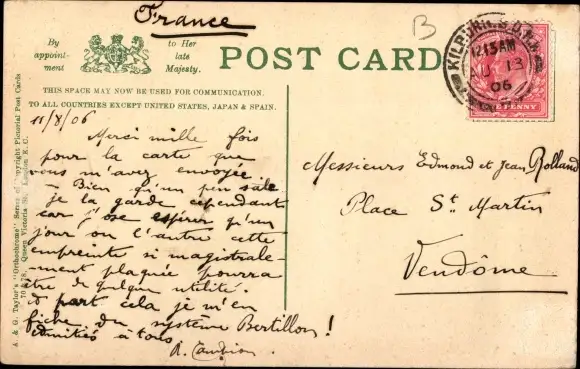 France
B
By
appoint-
ment
to Her
late
Majesty.
POST CARD
THIS SPACE MAY NOW BE USED FOR COMMUNICATION.
TO ALL COUNTRIES EXCEPT UNITED STATES, JAPAN & SPAIN.
KILBURN.S.O.N.W
12.15AM
AU 13
06
ONE PENNY
11/8/06
Merci mille fois
pour la carte que
vous m'avez envoyée
- Bien qu'un peu sale
je la garde cependant
car j'ose espérer qu'un
jour ou l'autre cette
empreinte si magistrale-
ment plaquée pourra
être de quelque utilité.
à part cela je m'en
fiche du système Bertillon!
amitiés à tous
Messieurs Edmond et Jean Rolland
Place St. Martin
Vendôme
A. & G. Taylor's "Orthochrome" Series of Copyright Pictorial Post Cards
70 & 78, Queen Victoria St., London E. C.